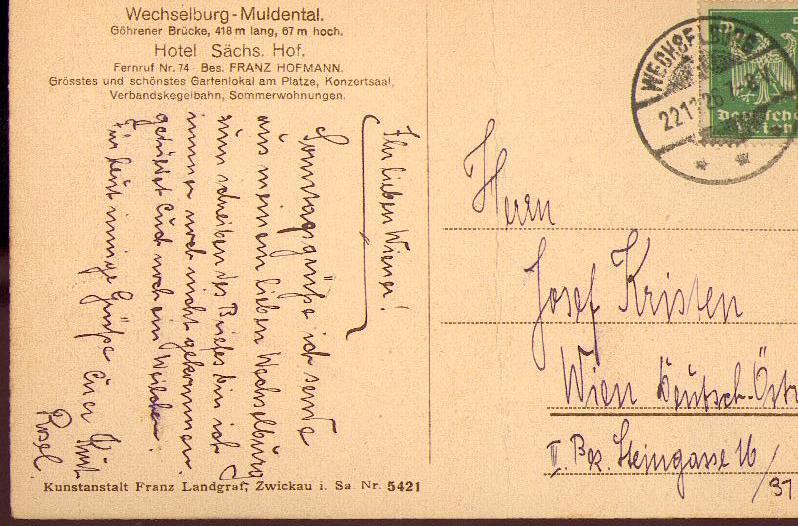 Wechselburg-Muldental.
Göhrener Brücke, 418 m lang, 67 m hoch.
Hotel Sächs. Hof.
Fernruf Nr. 74 - Bes. FRANZ HOFMANN.
Grösstes und schönstes Gartenlokal am Platze, Konzertsaal,
Verbandskegelbahn, Sommerwohnungen.
Ihr lieben Wiener!
Sonntagsgrüße ich sende
aus meinem lieben Wechselburg
zum schreiben des Briefes bin ich
immer noch nicht gekommen.
geduldet Euch noch ein Weilchen.
Für heut innige Grüße Euer
Rosel.
WECHSELBURG
22.11.26. 7-8 V
Deutsches
Reich
Herrn
Josef Kristen
Wien Deutsch-Östr
II. Bez. Steingasse 16/
31
Kunstanstalt Franz Landgraf, Zwickau i. Sa. Nr. 5421